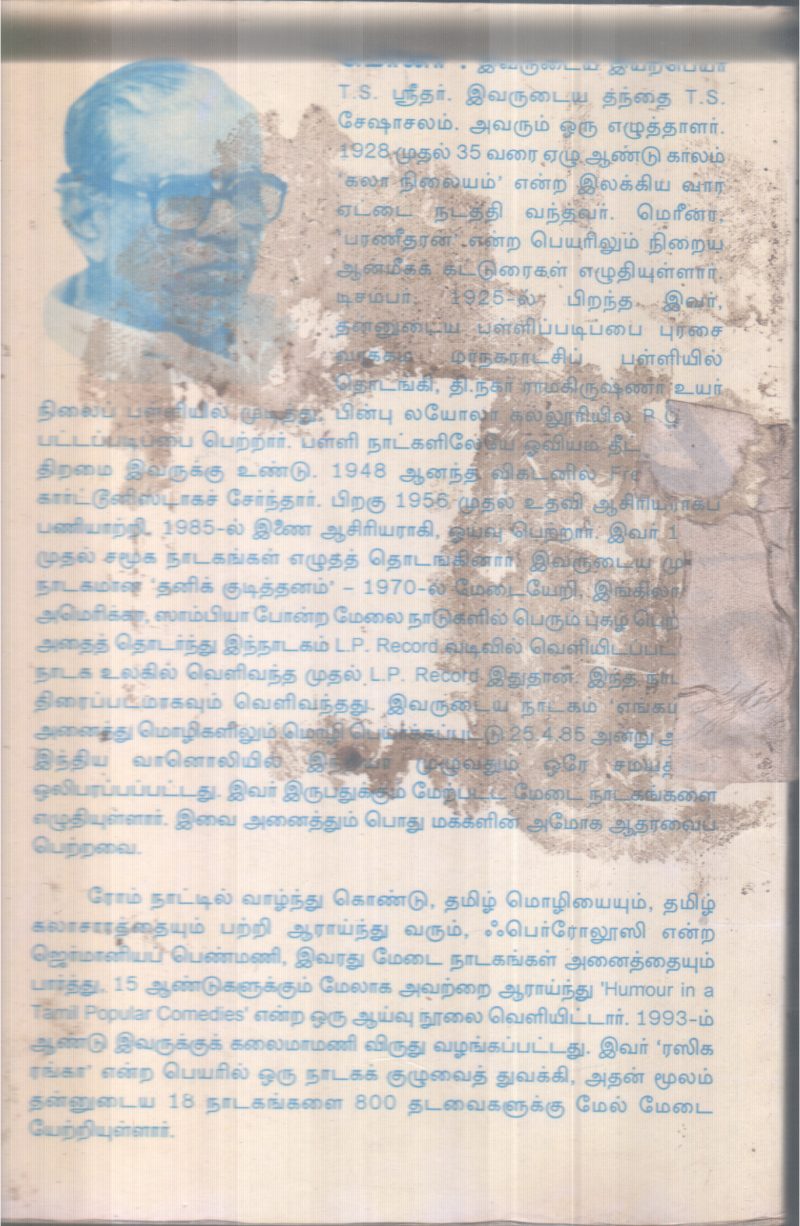 மெரீனா : இவருடைய இயற்பெயர்
T.S. ஸ்ரீதர். இவருடைய தந்தை T.S.
சேஷாசலம். அவரும் ஒரு எழுத்தாளர்.
1928 முதல் 35 வரை ஏழு ஆண்டு காலம்
'கலா நிலையம்' என்ற இலக்கிய வார
ஏட்டை நடத்தி வந்தவர். மெரீனா,
'பரணீதரன்' என்ற பெயரிலும் நிறைய
ஆன்மீகக் கட்டுரைகள் எழுதியுள்ளார்.
டிசம்பர், 1925-ல் பிறந்த இவர்,
தன்னுடைய பள்ளிப்படிப்பை புரசை
வாக்கம் மாநகராட்சிப் பள்ளியில்
தொடங்கி, தி.நகர் ராமகிருஷ்ணா உயர்
நிலைப் பள்ளியில் முடித்து, பின்பு லயோலா கல்லூரியில்
பட்டப்படிப்பை பெற்றார். பள்ளி நாட்களிலேயே ஓவியம்
திறமை இவருக்கு உண்டு. 1948 ஆனந்த விகடனில்
கார்ட்டூனிஸ்டாகச் சேர்ந்தார். பிறகு 1956 முதல் உதவி ஆசிரியராகப்
பணியாற்றி, 1985-ல் இணை ஆசிரியராகி, ஓய்வு பெற்றார். இவர்
முதல் சமூக நாடகங்கள் எழுதத் தொடங்கினார். இவருடைய
நாடகமான 'தனிக் குடித்தனம்' – 1970-ல் மேடையேறி,
அமெரிக்கா, ஸாம்பியா போன்ற மேலை நாடுகளில் பெரும் புகழ்
அதைத் தொடர்ந்து இந்நாடகம் L.P. Record வடிவில்
நாடக உலகில் வெளிவந்த முதல் L.P. Record இதுதான். இந்த
திரைப்படமாகவும் வெளிவந்தது. இவருடைய நாடகம்
அனைத்து மொழிகளிலும் மொழி பெயர்க்கப்பட்டு 25.4.85 அன்று
இந்திய வானொலியில் இந்தியா முழுவதும் ஒரே
ஒலிபரப்பப்பட்டது. இவர் இருபதுக்கும் மேற்பட்ட மேடை நாடகங்களை
எழுதியுள்ளார். இவை அனைத்தும் பொது மக்களின் அமோக ஆதரவைப்
பெற்றவை.
ரோம் நாட்டில் வாழ்ந்து கொண்டு, தமிழ் மொழியையும், தமிழ்
கலாசாரத்தையும் பற்றி ஆராய்ந்து வரும், ஃபெர்ரோலூஸி என்ற
ஜெர்மானியப் பெண்மணி, இவரது மேடை நாடகங்கள் அனைத்தையும்
பார்த்து, 15 ஆண்டுகளுக்கும் மேலாக அவற்றை ஆராய்ந்து 'Humour in a
Tamil Popular Comedies' என்ற ஒரு ஆய்வு நூலை வெளியிட்டார். 1993-ம்
ஆண்டு இவருக்குக் கலைமாமணி விருது வழங்கப்பட்டது. இவர் 'ரஸிக
ரங்கா' என்ற பெயரில் ஒரு நாடகக் குழுவைத் துவக்கி, அதன் மூலம்
தன்னுடைய 18 நாடகங்களை 800 தடவைகளுக்கு மேல் மேடை
யேற்றியுள்ளார்.